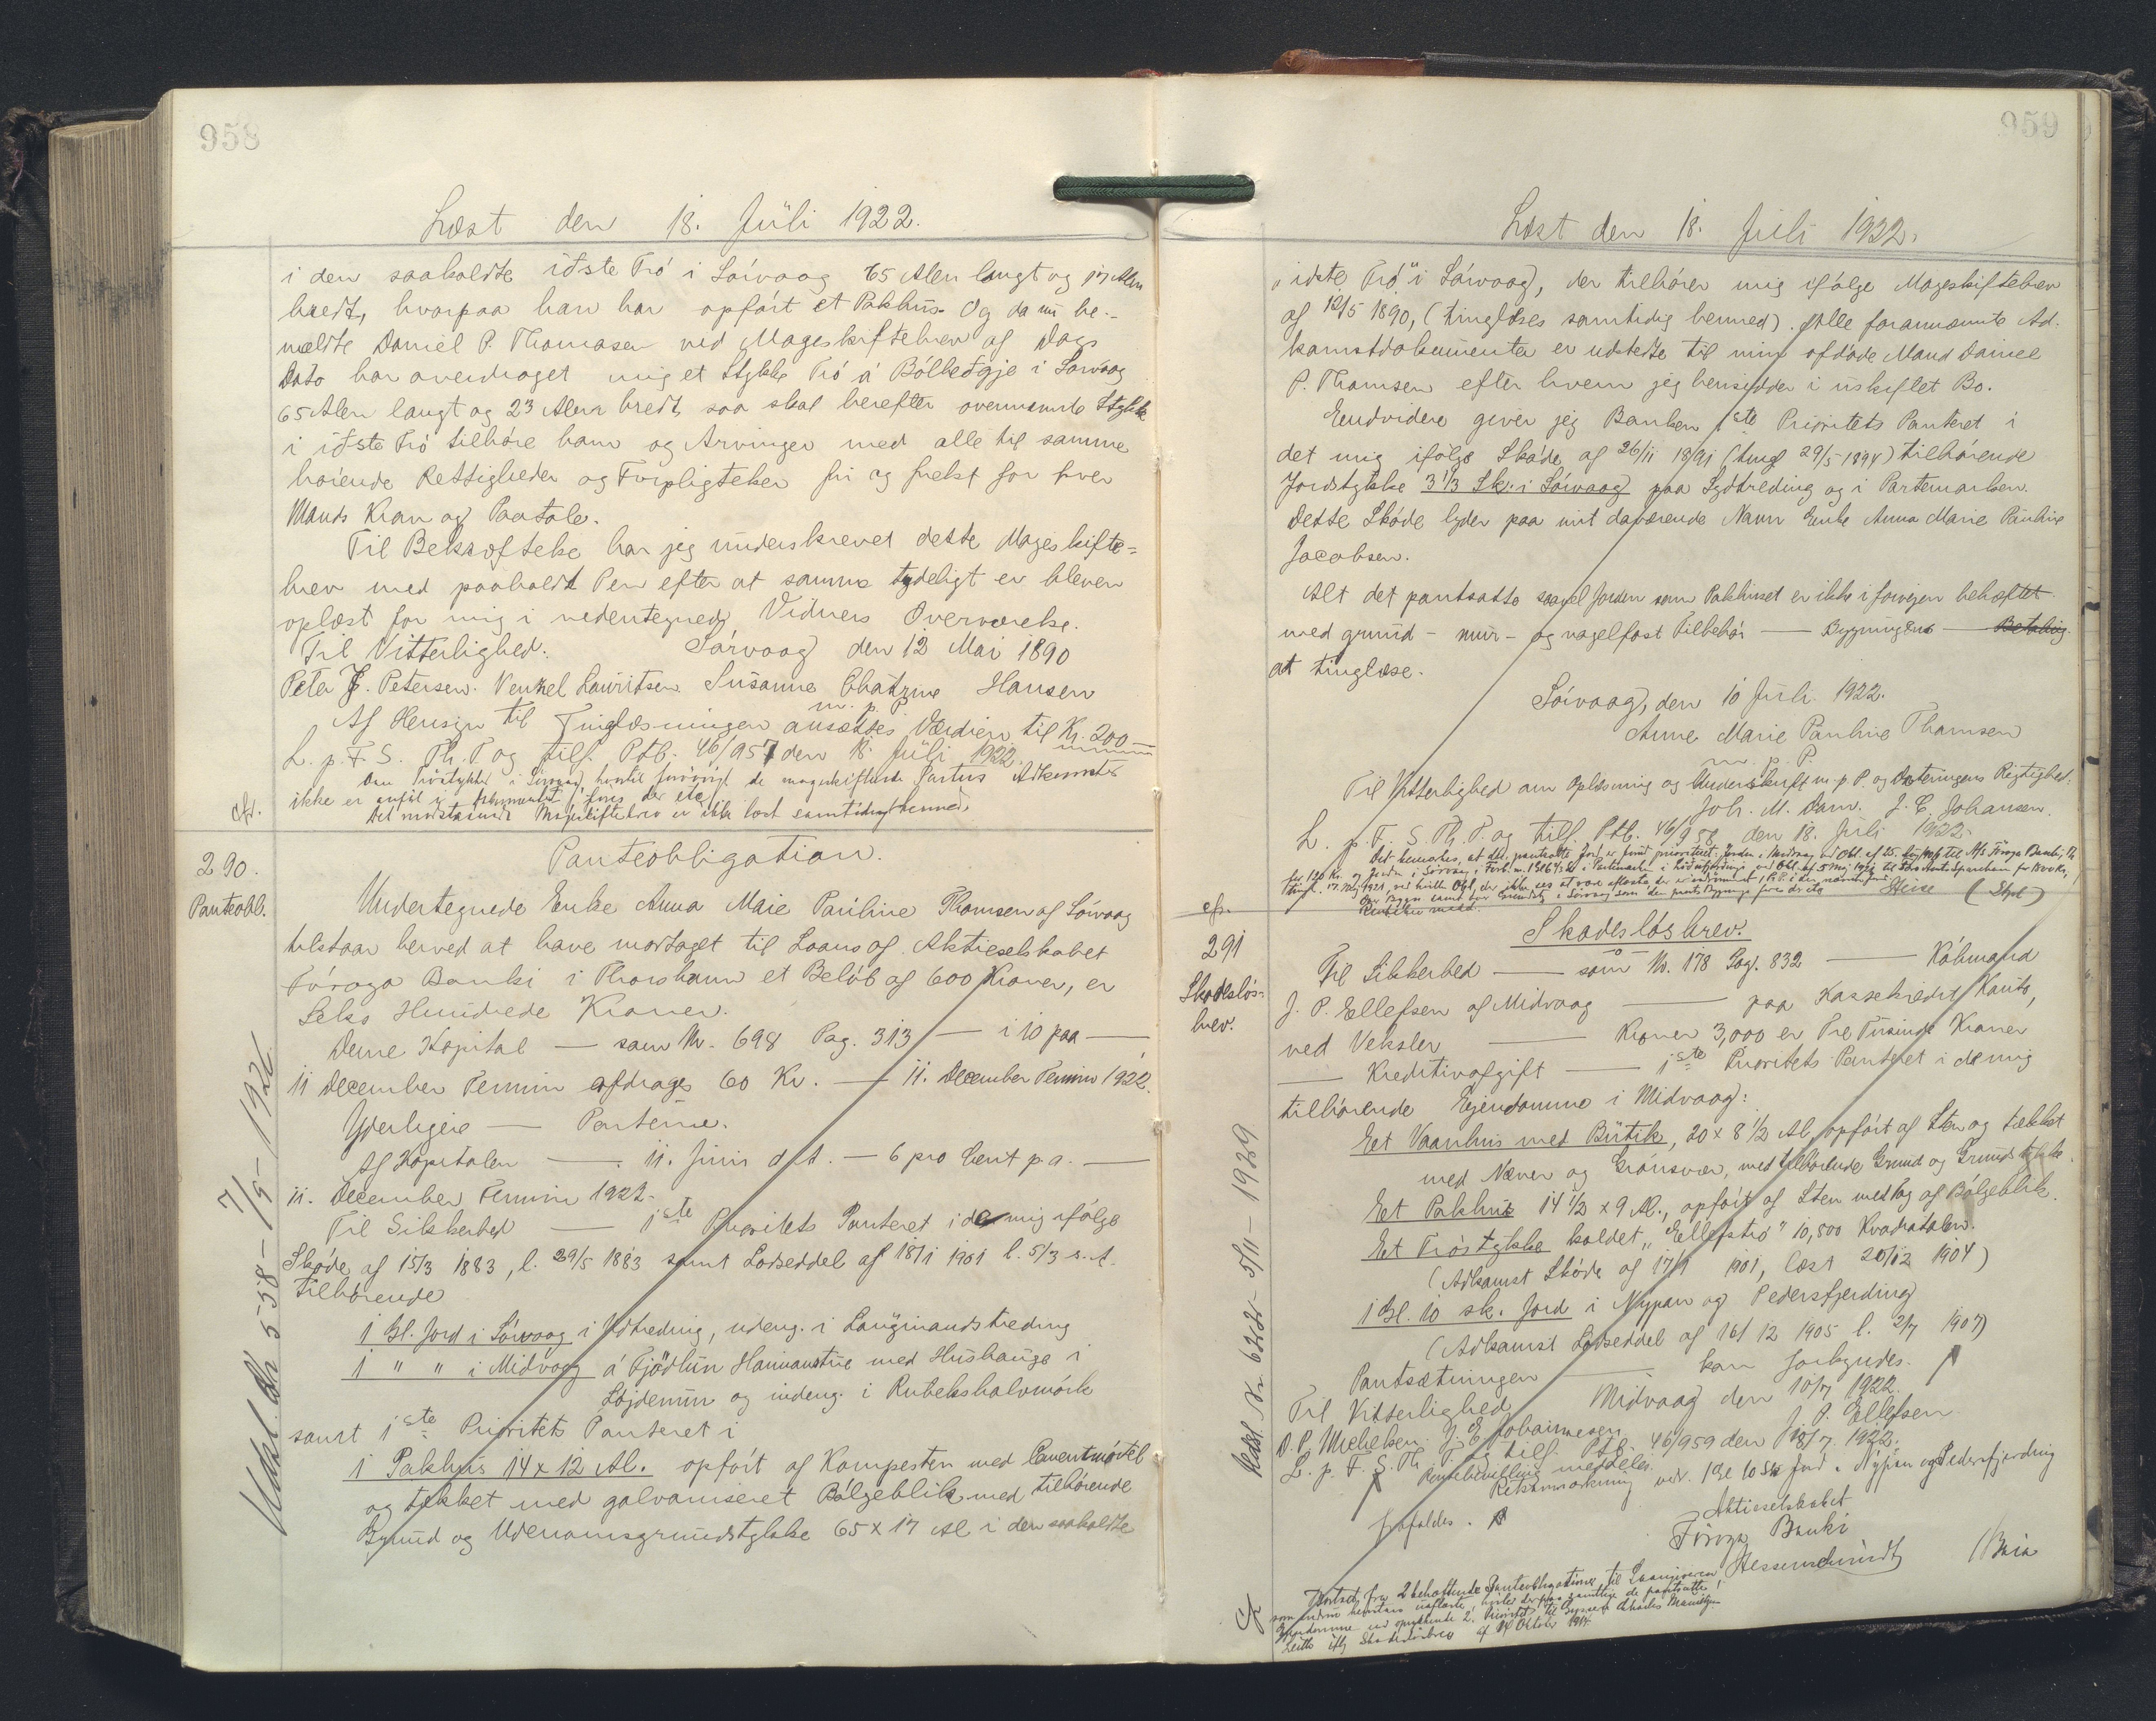 958
Læst den 18. Juli 1922.
i den saakaldte iðste Tró i Sórvaag 65 Alen langt og 17 Alen
bredt, hvorpaa han har opfört et Pakhus. Og da nu be-
meldte Daniel P. Thomasen ved Mageskiftebrev af Dags
Dato har overdraget mig et Stykke Tró á Bólheyggje i Sórvaag
65 Alen langt og 23 Alen bredt, saa skal herefter ovennævnte Stykke
i iðste Tró tilhöre ham og Arvinger med alle til samme
hörende Rettigheder og Forpligtelser fri og frelst for hver
Mands Krav og Paatale.
Til Bekræftelse har jeg underskrevet dette Mageskifte-
brev med paaholdt Pen efter at samme tydeligt er bleven
oplæst for mig i nedentegnede Vidners Overværelse.
Til Vitterlighed. Sórvaag den 12 Mai 1890
Peter J. Petersen. Venzel Lauritsen. Susanne Chatrine Hansen
m. p. P.
Af Hensyn til Tinglæsningen ansættes Værdien til Kr. 200 —
L. p. F. S. Th. T og tilf. Ptb. 46/957 den 18. Juli 1922.
Om Tróstykket i Sörvaag, hvortil forövrigt de mageskiftende Parters Adkomster
ikke er anfört i Dokumentet, föres der etc.
Det modstaaende Mageskiftebrev er ikke læst samtidig hermed.
cfr.
290.
Panteobl.
Panteobligation.
Undertegnede Enke Anna Marie Pauline Thomsen af Sórvaag
tilstaar herved at have modtaget til Laans af Aktieselskabet
Föroya Banki i Thorshavn et Belöb af 600 Kroner, er
Seks Hundrede Kroner.
Denne Kapital — som Nr. 698 Pag. 313 — i 10 paa —
11 December Termin afdrages 60 Kr. — 11. December Termin 1922.
Yderligere — Panterne.
Af Kapitalen — 11. Juni d. A. — 6 pro Cent p. a. —
11. December Termin 1922.
Til Sikkerhed — 1ste Prioritets Panteret i de mig ifölge
Sköde af 15/3 1883, l. 29/5 1883 samt Lodseddel af 18/1 1901 l. 5/3 s. A.
tilhörende
1 Gl. Jord i Sórvaag i Ydtreding, udeng. i Langmandstreding
1 " " i Midvaag á Fjödlun Hannanstue med Hushauge i
Löjdenun og indeng. i Rubekshalvmörk
samt 1ste Prioritets Panteret i
1 Pakhus 14 x 12 Al. opfört af Kampesten med Cementmörtel
og tækket med galvaniseret Bölgeblik med tilhörende
Grund og Udenomsgrundstykke 65 x 17 Al i den saakaldte
Udsl. Nr 538 - 7/5 - 1926
959
Læst den 18. Juli 1922.
„idste Tró" i Sórvaag, der tilhörer mig ifölge Mageskiftebrev
af 12/5 1890, (tinglæses samtidig hermed). Alle forannævnte Ad-
komstdokumenter er udstedte til min afdöde Mand Daniel
P. Thomsen efter hvem jeg hensidder i uskiftet Bo.
Endvidere giver jeg Banken 1ste Prioritets Panteret i
det mig ifölge Sköde af 26/11 1891 (tingl 29/5 1894) tilhörende
Jordstykke 3 1/3 Sk. i Sórvaag paa Sydtreding og i Partemarken.
Dette Sköde lyder paa mit daværende Navn Enke Anna Marie Pauline
Jacobsen.
Alt det pantsatte saavel Jorden som Pakhuset er ikke i forvejen behæftet
med grund - mur - og nagelfast Tilbehör — Bygningens — Betaling
at tinglæse.
Sórvaag, den 10 Juli 1922.
Anne Marie Pauline Thomsen
m. p. P.
Til Vitterlighed om Oplæsning og Underskrift m. p P. og Dateringens Rigtighed:
Joh. M. Dam. J. C. Johansen.
L. p. F. S. Th. T. og tilf. Ptb. 46/958 den 18. Juli 1922.
Det bemærkes, at det pantsatte Jord er forud prioriteret
cfr.
291
Skadeslös-
brev.
Skadeslösbrev.
Til Sikkerhed — som Nr. 178 Pag. 832 — Köbmand
J. P. Ellefsen af Midvaag — paa Kassekredit Konto,
ved Veksler — Kroner 3,000 er Tre Tusinde Kroner
— Kreditivafgift — 1ste Prioritets Panteret i de mig
tilhörende Ejendomme i Midvaag:
Eet Vaanhus med Butik, 20 x 8 1/2 Al, opfört af Sten og tækket
med Næver og Grönsvær, med tilhörende Grund og Grundstykke.
Eet Pakhus 14 1/2 x 9 Al., opfört af Sten med Tag af Bölgeblik.
Eet Tróstykke kaldet „Ellefstró" 10,800 Kvadratalen.
(Adkomst Sköde af 17/1 1901, læst 20/12 1904)
1 Gl. 10 sk. Jord i Nypan og Pedersfjerding
(Adkomst Lodseddel af 16/12 1905 l. 2/7 1907)
Pantsætningen — kan forkyndes.
Til Vitterlighed Midvaag den 10/7 1922.
D. P. Michelsen. J. E. Johannesen J. P. Ellefsen
L. p. F. S. Th. T og tilf. Ptb. 46/959 den 18/7 1922.
Rentebevilling meddeles.
Retsanmærkning vedr. 1 Gl 10 Sk Jord i Nýpan og Pedersfjerding
frafaldes.
Aktieselskabet
Föroya Banki
Hessenschmidt
Udsl. Nr. 6212 - 5/11 - 1929
cfr
Leith iflg Skadeslösbrev af 14 Oktober 1914.